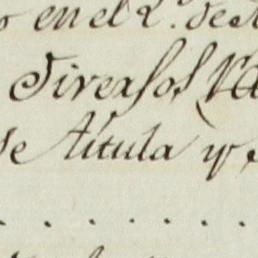 en el 2.º de
Diversos
se titula y